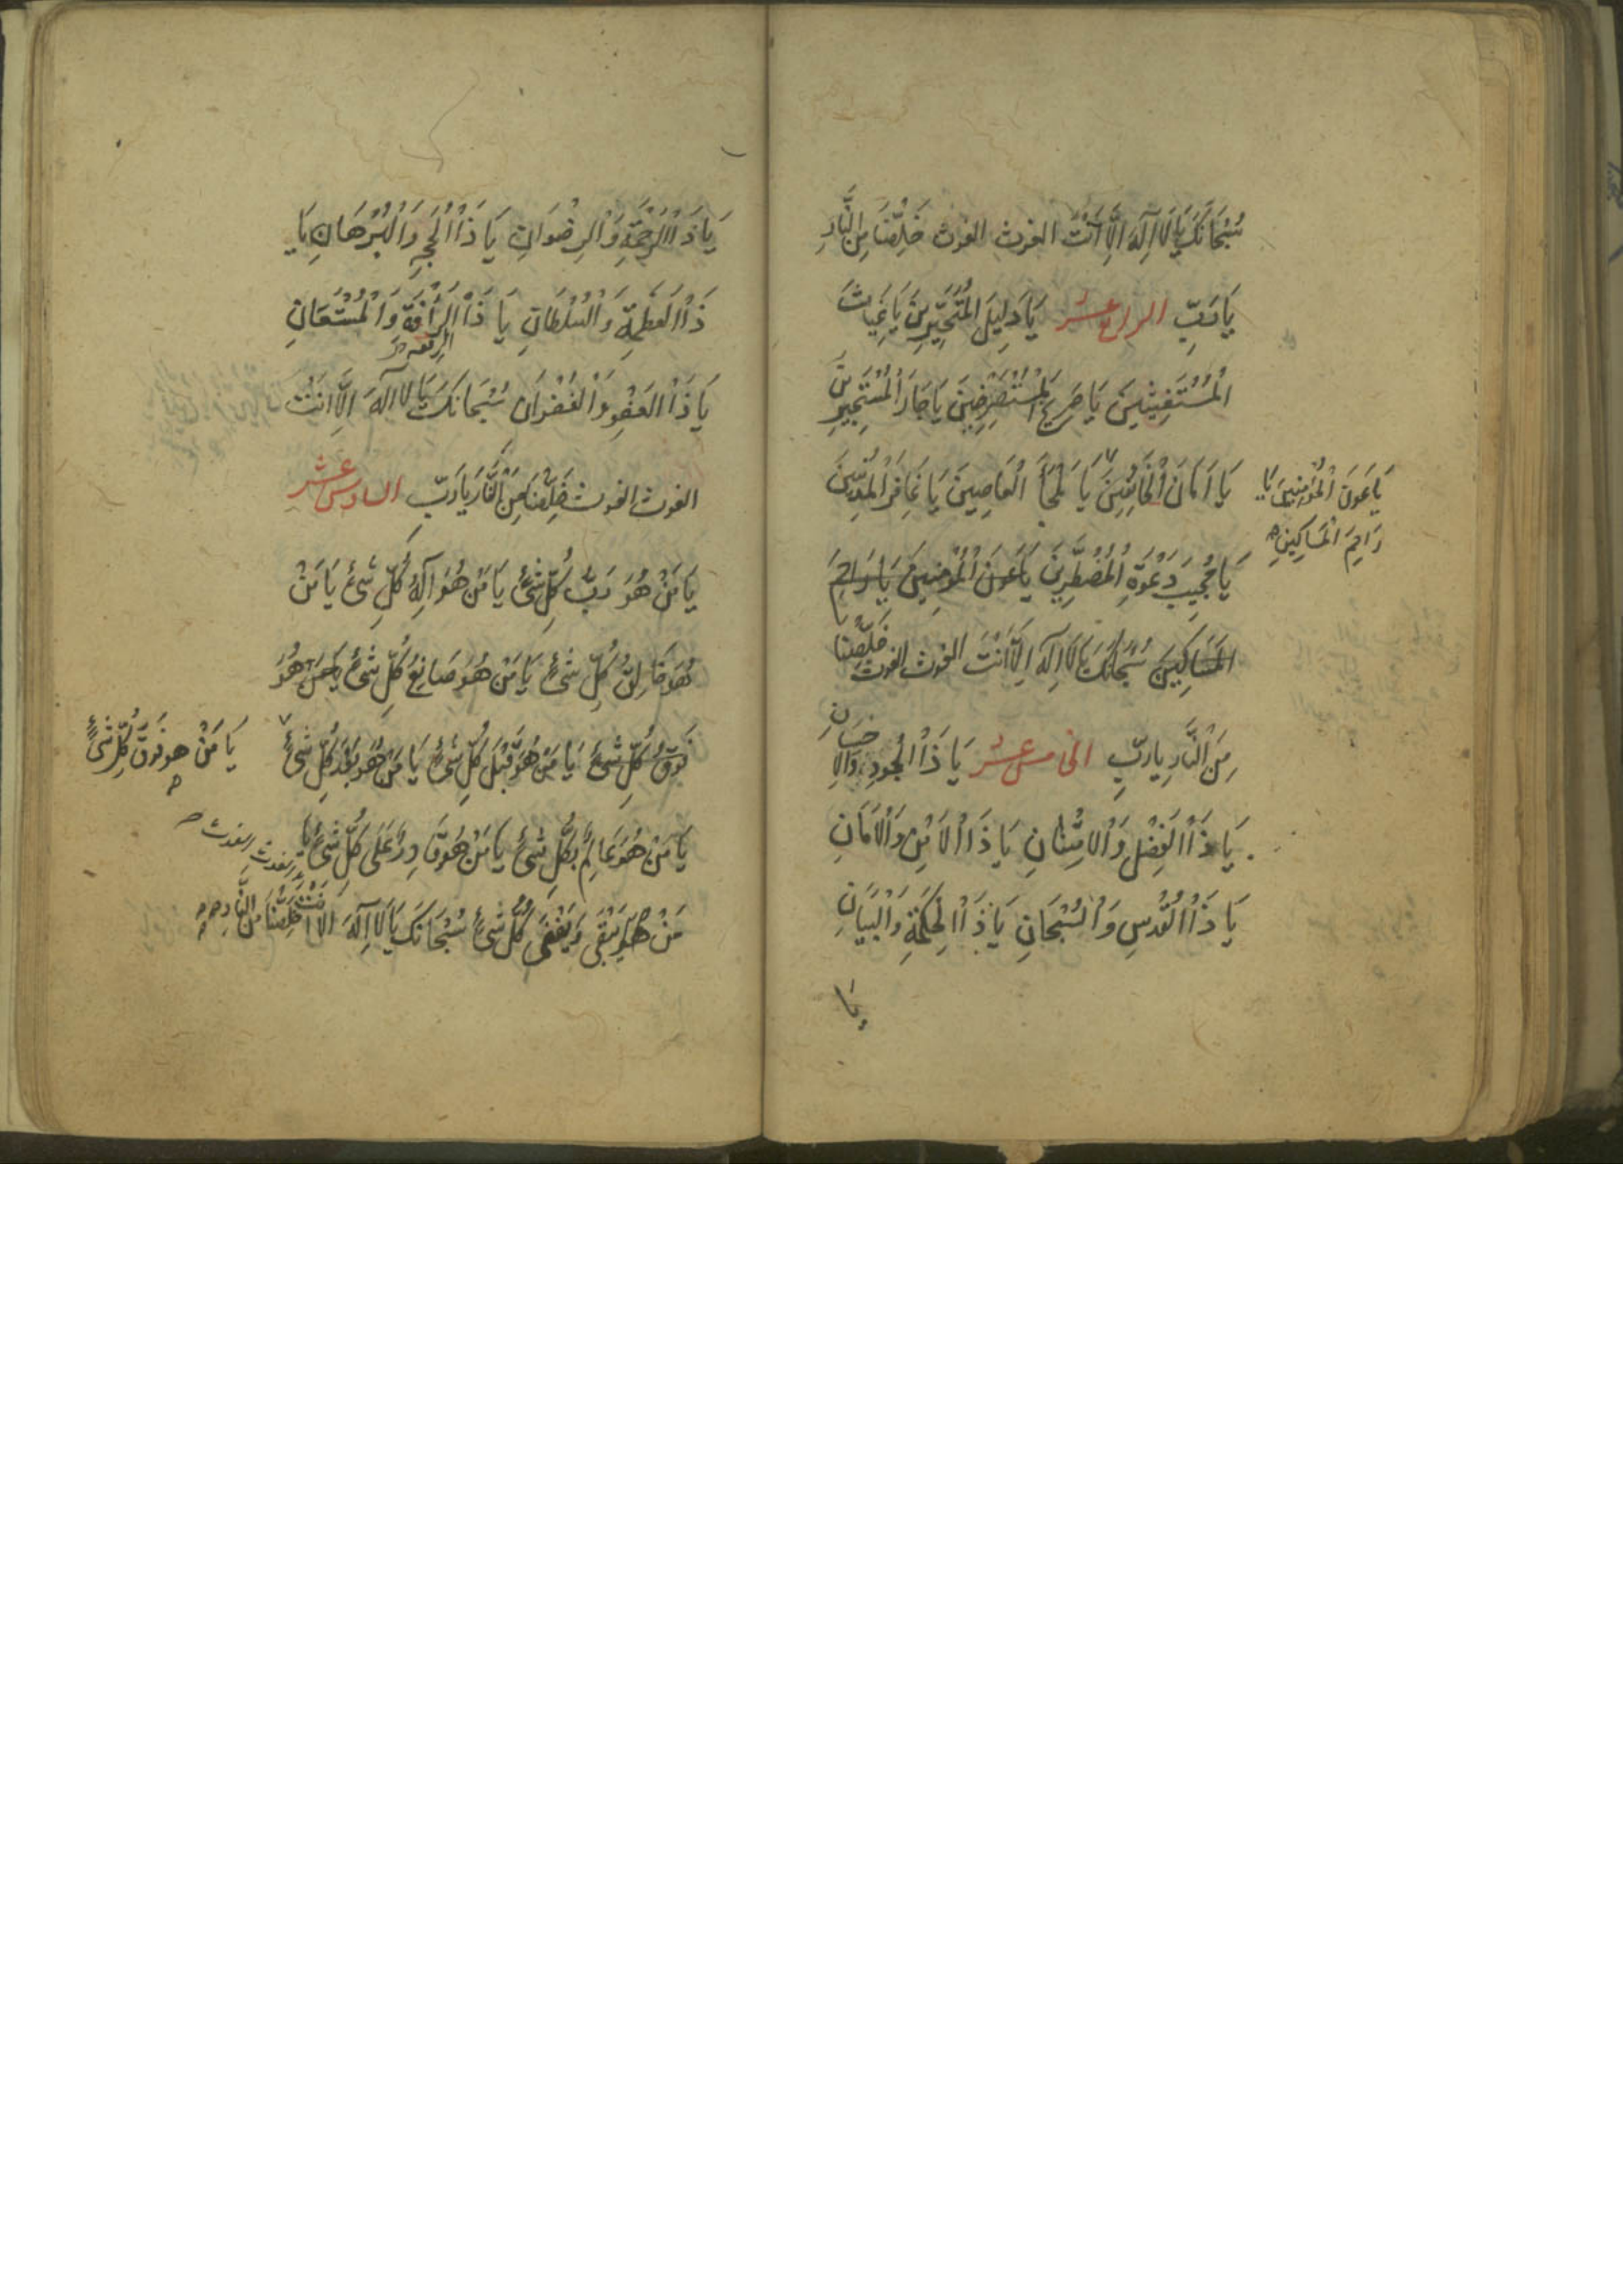 سُبْحَانَكَ يَا لَا اِلَهَ اِلَّا اَنْتَ الغوث الغوث خَلِّصْنَا مِنَ النَّارِ
يَا رَبِّ الرابع عشر يَا دَلِيلَ الْمُتَحَيِّرِينَ يَا غِيَاثَ
الْمُسْتَغِيثِينَ يَا صَرِيخَ الْمُسْتَصْرِخِينَ يَا جَارَ الْمُسْتَجِيرِينَ
يَا اَمَانَ الْخَائِفِينَ يَا مَلْجَأَ الْعَاصِينَ يَا غَافِرَ الْمُذْنِبِينَ
يَا عَونَ الْمُؤْمِنِينَ يَا
رَاحِمَ الْمَسَاكِينِ
يَا مُجِيبَ دَعْوَةِ الْمُضْطَرِّينَ يَا عَونَ الْمُؤْمِنِينَ يَا رَاحِمَ
الْمَسَاكِينَ سُبْحَانَكَ يَا لَا اِلَهَ اِلَّا اَنْتَ الغوث الغوث خَلِّصْنَا
مِنَ النَّارِ يارَبِّ الخامس عشر يَا ذَا الْجُودِ وَالْاِحْسَانِ
يَا ذَا الْفَضْلِ وَالْاِمْتِنَانِ يَا ذَا الْاَمْنِ وَالْاَمَانِ
يَا ذَا الْقُدْسِ وَالسُّبْحَانِ يَا ذَا الْحِكْمَةِ وَالْبَيَانِ
يَا
يَا ذَا الرَّحْمَةِ وَالرِضْوَانِ يَا ذَا الْحُجَّةِ وَالْبُرْهَانِ يَا
ذَا الْعَظَمَةِ وَالسُّلْطَانِ يَا ذَا الرَّأْفَةِ وَالْمُسْتَعَانِ
يَا ذَا الْعَفْوِ وَالْغُفْرَانِ سُبْحَانَكَ يَا لا اِلهَ اِلَّا اَنْتَ
الغوث الغوث خَلِّصْنَا مِنَ النَّار يَا رَبِّ السادس عشر
يَا مَنْ هُوَ رَبُّ كُلِّ شَیْءٍ يَا مَنْ هُوَ اِلَهُ كُلِّ شَیْءٍ يَا مَنْ
هُوَ خَالِقُ كُلِّ شَیْءٍ يَا مَنْ هُوَ صَانِعُ كُلِّ شَیْءٍ يَا مَنْ هُوَ
فَوْقَ كُلِّ شَیْءٍ يَا مَنْ هُوَ قَبْلَ كُلِّ شَیْءٍ يَا مَنْ هُوَ بَعْدَ كُلِّ شَیْءٍ
يَا مَنْ هو فَوقَ كُلِّ شَیْءٍ
يَا مَنْ هُوَ عَالِمٌ بِكُلِّ شَیْءٍ يَا مَنْ هُوَ قَادِرٌ عَلَى كُلِّ شَیْءٍ يَا
مَنْ هُوَ يَبْقَى وَيَفْنَى كُلُّ شَیْءٍ سُبْحَانَكَ يَا لَا اِلَهَ اِلَّا اَنْتَ خَلِّصْنَا مِنَ النَّارِ
الغوث الغوث